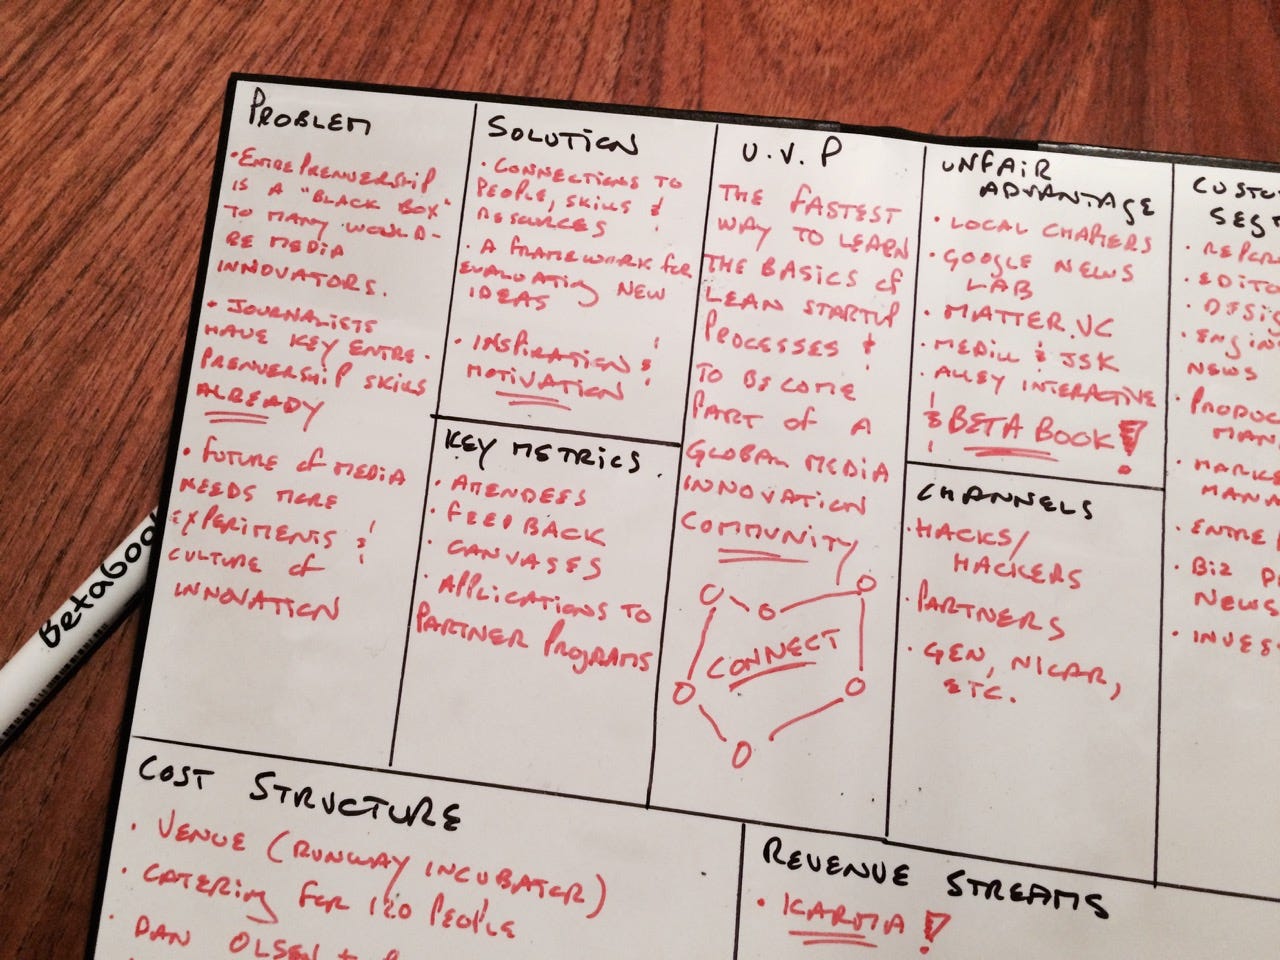 PROBLEM
• ENTREPRENUERSHIP
IS A "BLACK BOX"
TO MANY WOULD-
BE MEDIA
INNOVATORS.
• JOURNALISTS
HAVE KEY ENTRE-
PRENUERSHIP SKILLS
ALREADY
• FUTURE OF MEDIA
NEEDS MORE
EXPERIMENTS &
CULTURE OF
INNOVATION
SOLUTION
• CONNECTIONS TO
PEOPLE, SKILLS &
RESOURCES
• A FRAMEWORK FOR
EVALUATING NEW
IDEAS
• INSPIRATION &
MOTIVATION
KEY METRICS.
• ATTENDEES
• FEEDBACK
• CANVASES
• APPLICATIONS TO
PARTNER PROGRAMS
U.V.P
THE FASTEST
WAY TO LEARN
THE BASICS OF
LEAN STARTUP
PROCESSES &
TO BECOME
PART OF A
GLOBAL MEDIA
INNOVATION
COMMUNITY
CONNECT
UNFAIR
ADVANTAGE
• LOCAL CHAPTERS
• GOOGLE NEWS
LAB
• MATTER.VC
• MEDILL & JSK
• ALLEY INTERACTIVE
& BETA BOOK!
CHANNELS
• HACKS/
HACKERS
• PARTNERS
• GEN, NICAR,
ETC.
CUSTO
SEG
• REPOR
• EDITO
• DESIG
• ENGIN
NEWS
• PRODUC
MAN
• MARKE
MANA
• ENTRE
• BIZ
NEWS
• INVES
COST STRUCTURE
• VENUE (RUNWAY INCUBATOR)
• CATERING FOR 120 PEOPLE
• DAN OLSEN +
REVENUE STREAMS
• KARMA!
Betaboo